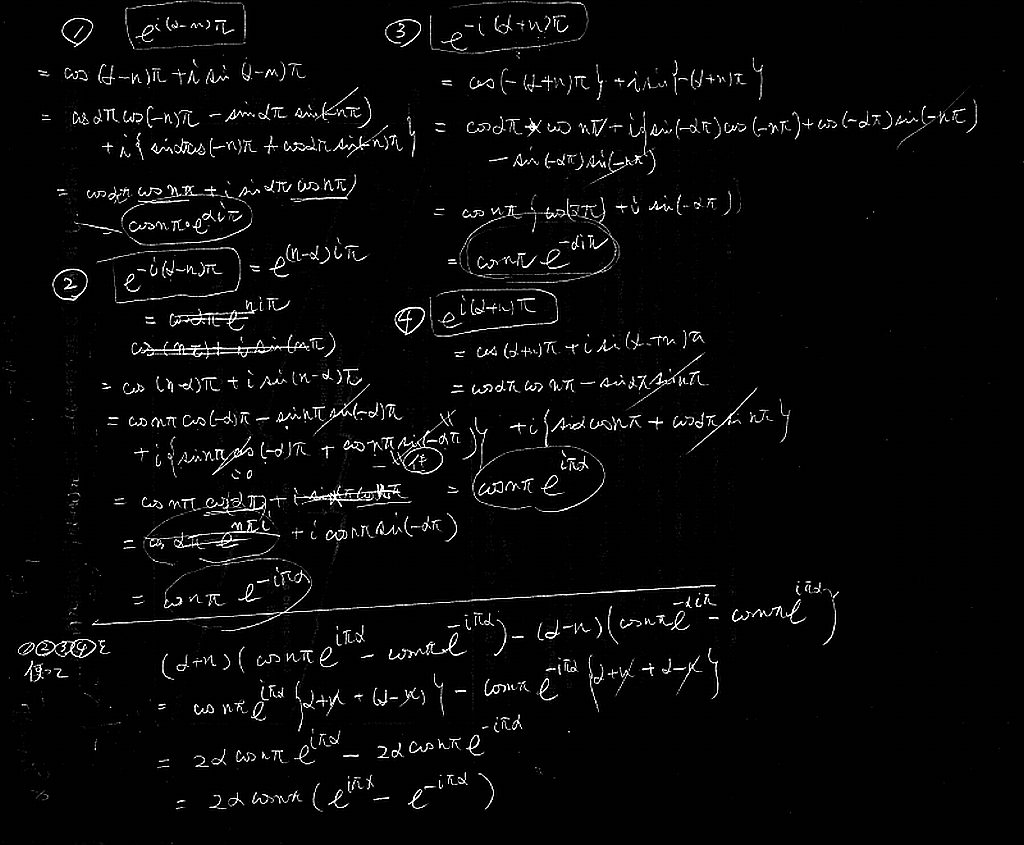 ① e^{i(α-n)π}
= cos (α-n)π + i sin (α-n)π
= cosαπ cos(-n)π - sinαπ sin(-nπ)
+ i{ sinαπcos(-n)π + cosαπ sin(-n)π }
= cosαπ cosnπ + i sinαπ cosnπ
cosnπ・e^{αiπ}
② e^{-i(α-n)π} = e^{(n-α)iπ}
= cosαπ e^{niπ}
cos(nπ) + i sin(nπ)
= cos (n-α)π + i sin(n-α)π
= cosnπ cos(-α)π - sinnπ sin(-α)π
+ i{ sinnπ cos(-α)π + cosnπ sin(-απ) }
= cosnπ cos(απ) +
= cos απ e^{nπi} + i cosnπ sin(-απ)
= cosnπ e^{-iπα}
③ e^{-i(α+n)π}
= cos{-(α+n)π} + i sin{-(α+n)π}
= cosαπ × cos nπ + i{ sin(-απ)cos(-nπ) + cos(-απ)sin(-nπ)
- sin(-απ)sin(-nπ)
= cosnπ { cos(απ) + i sin(-απ) }
= cosnπ e^{-αiπ}
④ e^{i(α+n)π}
= cos(α+n)π + i sin(α+n)π
= cosαπ cosnπ - sinαπ sinnπ
+ i { sinα cosnπ + cosαπ sin nπ }
= cosnπ e^{iπα}
①②③④を
使って
(α+n)(cosnπe^{iπα} - cosnπe^{-iπα}) - (α-n)(cosnπe^{-αiπ} - cosnπe^{iπα})
= cosnπe^{iπα}{α+n + (α-n)} - cosnπ e^{-iπα}{α+n + α-n}
= 2α cosnπ e^{iπα} - 2α cosnπ e^{-iπα}
= 2α cosnπ (e^{iπα} - e^{-iπα})